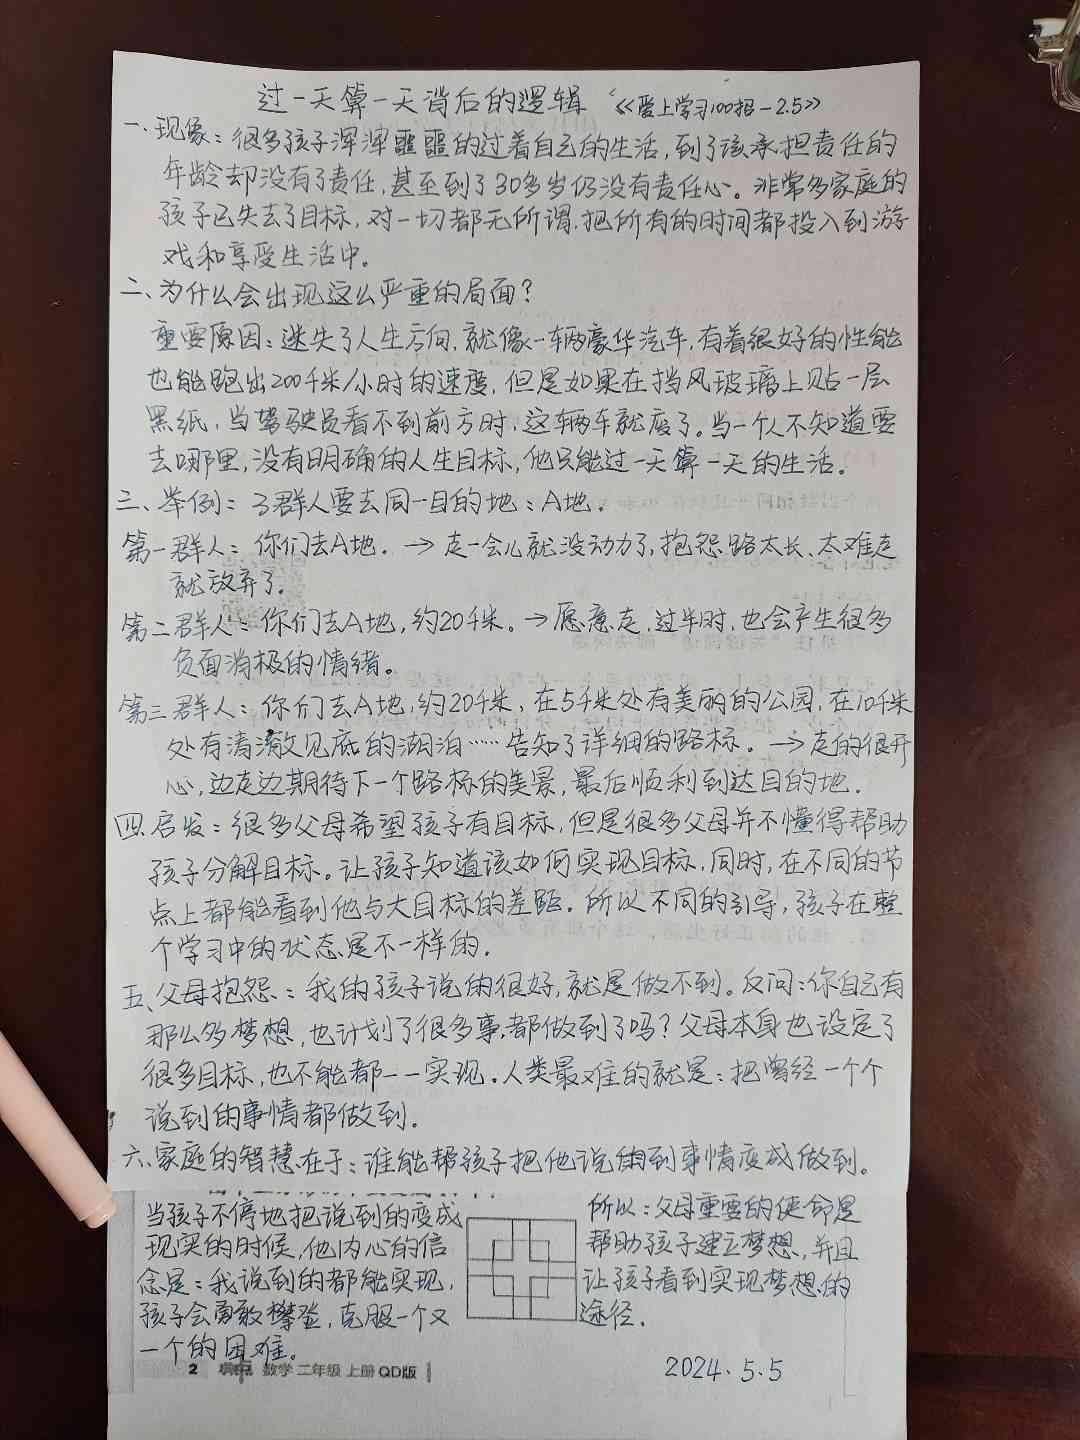 过一天算一天背后的逻辑 《爱上学习100招-2.5》
一、现象：很多孩子浑浑噩噩的过着自己的生活，到了该承担责任的
年龄却没有了责任，甚至到了30多岁仍没有责任心。非常多家庭的
孩子已失去了目标，对一切都无所谓，把所有的时间都投入到游
戏和享受生活中。
二、为什么会出现这么严重的局面？
重要原因：迷失了人生方向，就像一辆豪华汽车，有着很好的性能
也能跑出200千米/小时的速度，但是如果在挡风玻璃上贴一层
黑纸，当驾驶员看不到前方时，这辆车就废了。当一个人不知道要
去哪里，没有明确的人生目标，他只能过一天算一天的生活。
三、举例：3群人要去同一目的地：A地．
第一群人：你们去A地．→走一会儿就没动力了，抱怨路太长、太难走
就放弃了。
第二群人：你们去A地，约20千米。→愿意走，过半时，也会产生很多
负面消极的情绪。
第三群人：你们去A地，约20千米，在5千米处有美丽的公园，在10千米
处有清澈见底的湖泊……告知了详细的路标。→走的很开
心，边走边期待下一个路标的美景，最后顺利到达目的地．
四、启发：很多父母希望孩子有目标，但是很多父母并不懂得帮助
孩子分解目标。让孩子知道该如何实现目标，同时，在不同的节
点上都能看到他与大目标的差距。所以不同的引导，孩子在整
个学习中的状态是不一样的．
五、父母抱怨：我的孩子说的很好，就是做不到。反问：你自己有
那么多梦想，也计划了很多事，都做到了吗？父母本身也设定了
很多目标，也不能都一一实现．人类最难的就是：把曾经一个个
说到的事情都做到．
六、家庭的智慧在于：谁能帮孩子把他说到的事情变成做到．
当孩子不停地把说到的变成
现实的时候，他内心的信
念是：我说到的都能实现，
孩子会勇敢攀登，克服一个又
一个的困难。
所以：父母重要的使命是
帮助孩子建立梦想，并且
让孩子看到实现梦想的
途径．
2 典中点 数学 二年级 上册 QD版
2024.5.5